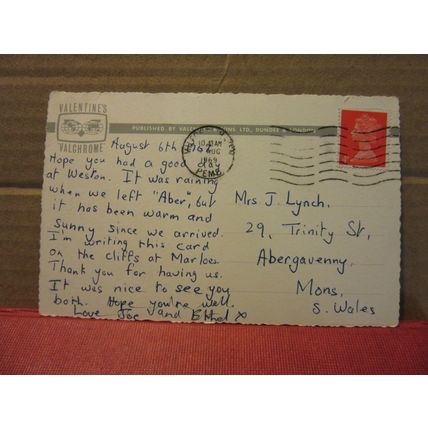 VALENTINE'S
VALCHROME
PUBLISHED BY VALENTINE & SONS LTD, DUNDEE & LONDON
10.15AM
AUG
1969
PEMB
August 6th
Hope you had a good day
at Weston. It was raining
when we left "Aber", but
it has been warm and
sunny since we arrived.
I'm writing this card
on the cliffs at Marloes.
Thank you for having us.
It was nice to see you
both. Hope you're well.
Love Joe and Ethel x
Mrs. J. Lynch.
29, Trinity St,
Abergavenny.
Mons,
S. Wales